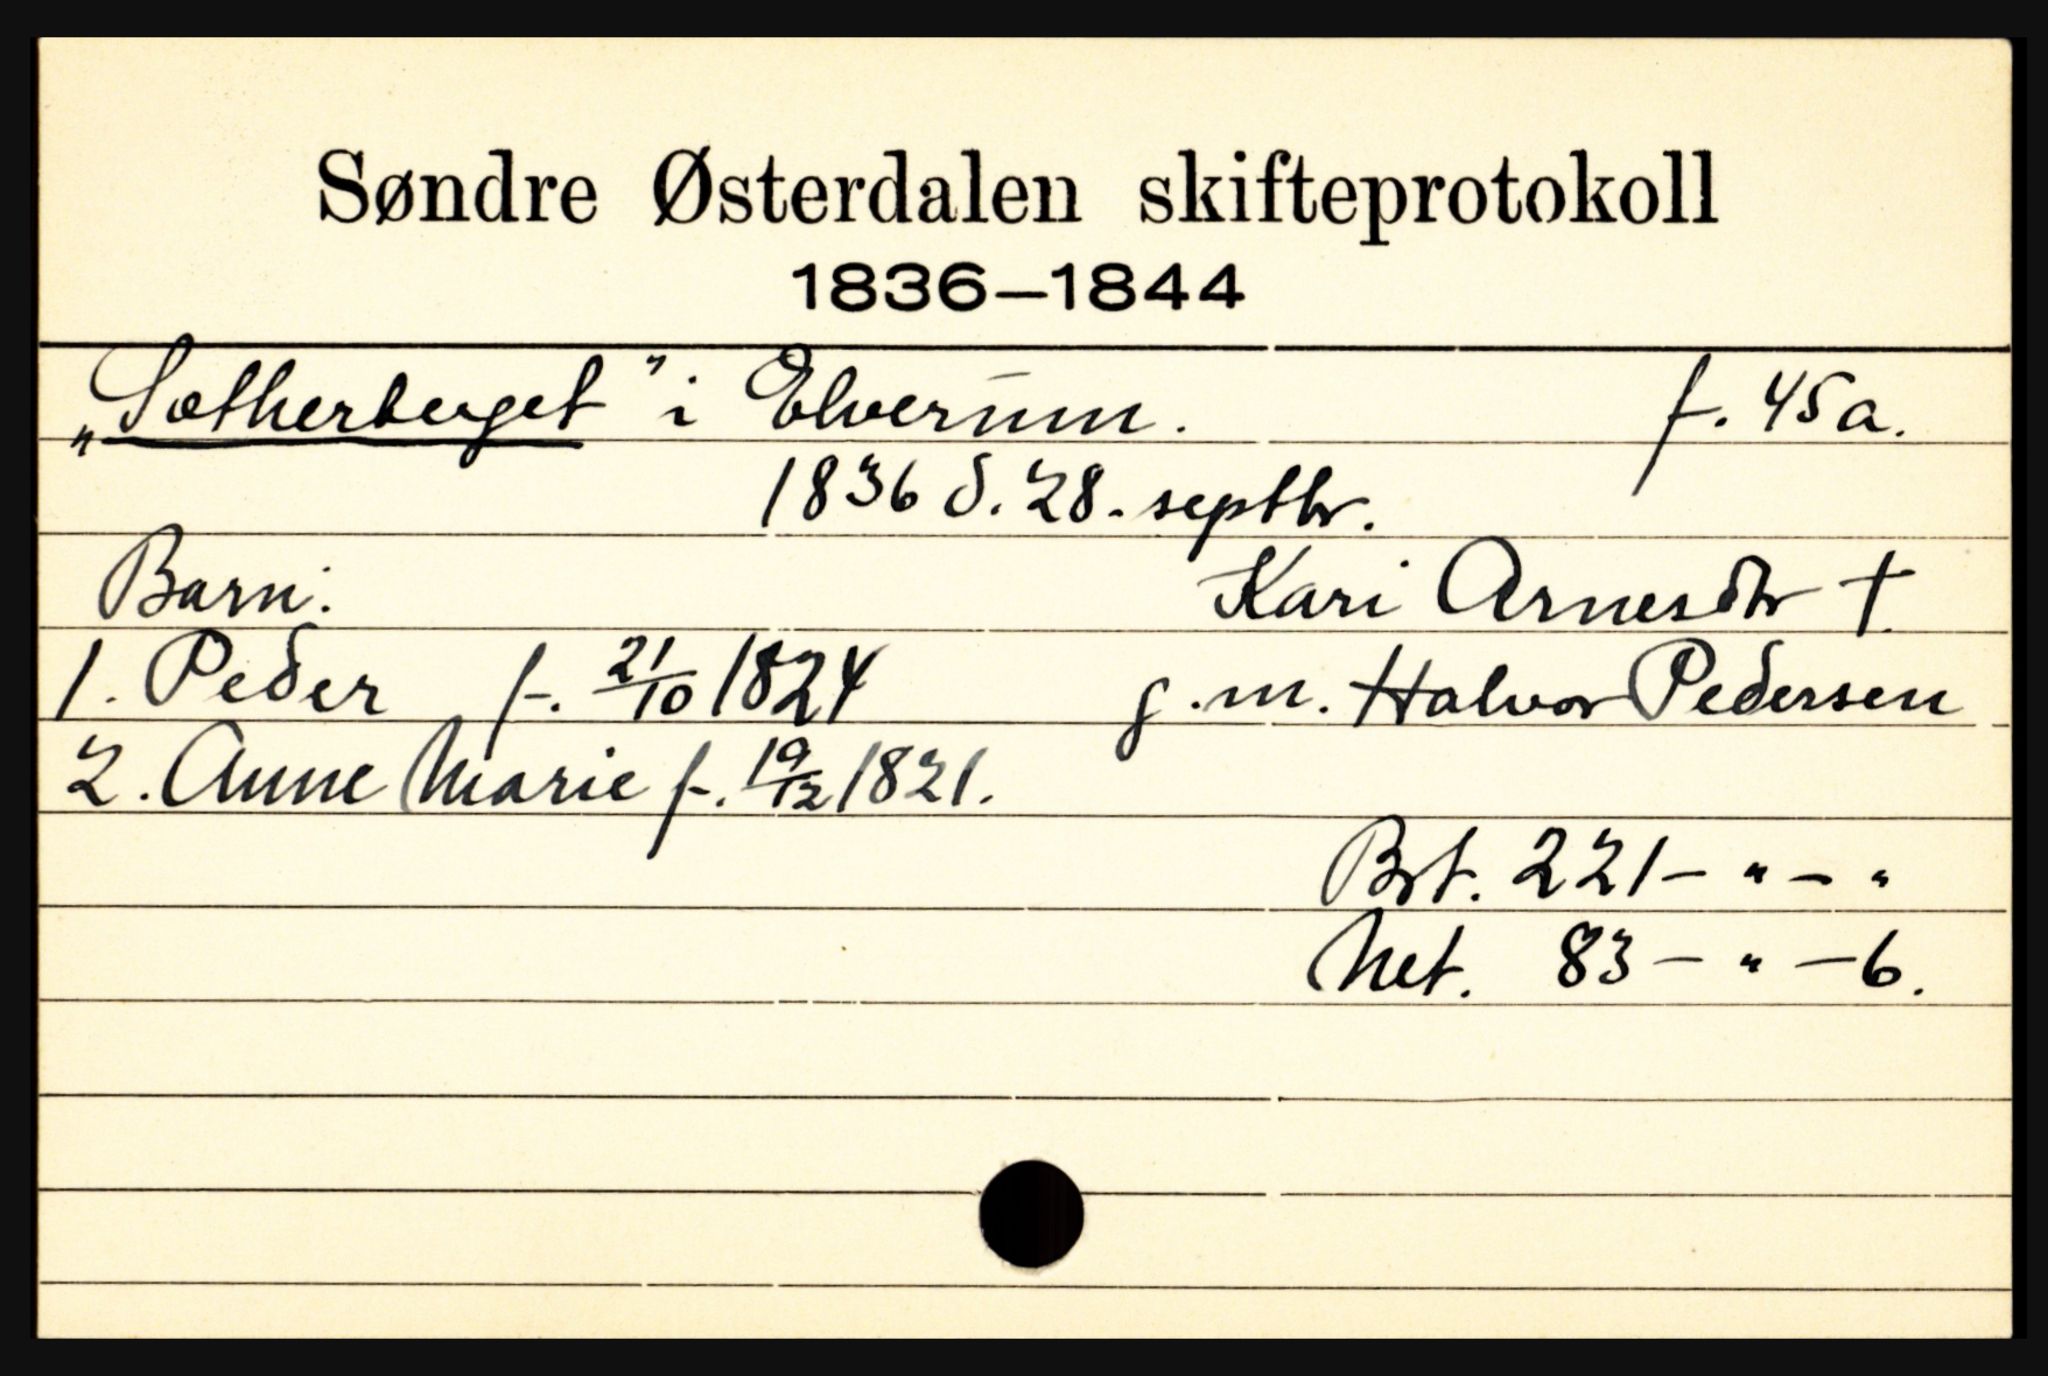 Søndre Østerdalen skifteprotokoll
1836–1844
„Sætherberget" i Elverum. f. 45a.
1836 d. 28. septbr.
Barn: Kari Arnesdtr †
1. Peder f. 21/10 1824 g.m. Halvor Pedersen
2. Anne Marie f. 19/12 1821.
Brt. 221 – " – "
Net. 83 – " – 6.